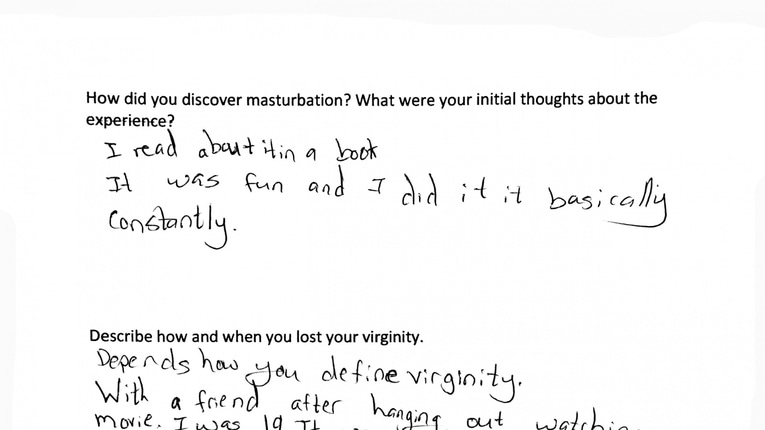 How did you discover masturbation? What were your initial thoughts about the
experience?
I read about it in a book
It was fun and I did it it basically
constantly.
Describe how and when you lost your virginity.
Depends how you define virginity.
With a friend after hanging out
movie. I was 19 It